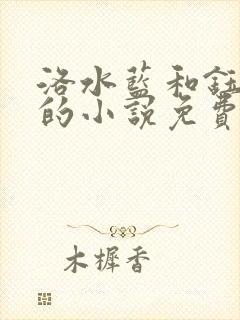 洛水藍和鈺
的小說免費
木樨香